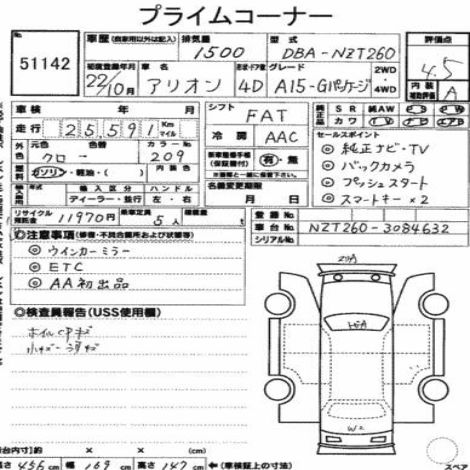 プライムコーナー
No.
51142
車歴 (自家用以外は記入)
排気量
1500
型式
DBA-NZT260
評価点
4.5
初度登録年月
22/10月
車名
アリオン
形状・ドア数
4D
グレード
A15-Gパッケージ
2WD
4WD
内装
補助評価
A
車検 年 月
シフト
FAT
純正品
SR 純AW
カワ
走行 25,591 Km マイル
冷房
AAC
セールスポイント
外色 元色 色替 カラーNo.
クロ 209
◎ 純正ナビ・TV
◎ バックカメラ
◎ プッシュスタート
◎ スマートキー×2
新車整備手帳
(保証書付)
有・無
燃料 ガソリン・軽油・( )
内装色
名義変更期限
月 日
年式 輸入区分 ハンドル
ディーラー・並行 左・右
リサイクル預託金 11970円
乗車定員 5人
登録No.
車台No. NZT260-3084632
シリアルNo.
◎注意事項 (修復・不具合箇所および状態等)
◎ ウインカーミラー
◎ ETC
◎ AA初出品
◎検査員報告 (USS使用欄)
ホイルキズ
小キズ
W2
荷台内寸) × × (cm)
長さ 456cm 幅 169cm 高さ 147cm ← (車検証上の寸法)
スペア